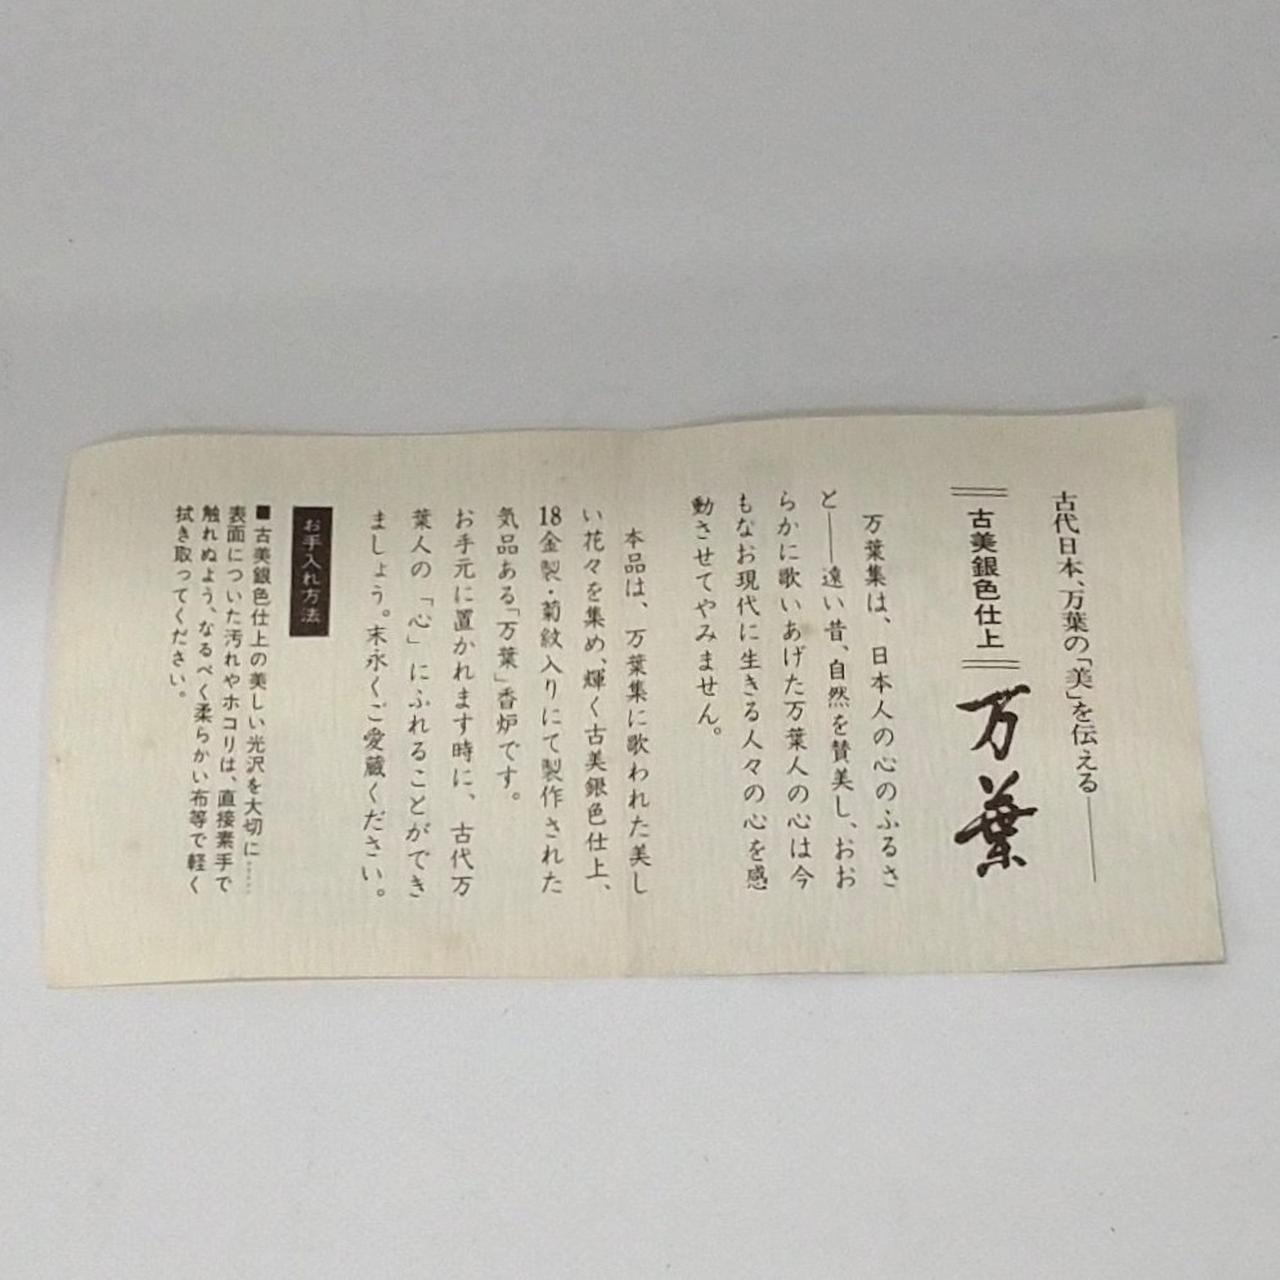 古代日本、万葉の「美」を伝える――
古美銀色仕上
万葉
万葉集は、日本人の心のふるさ
と――遠い昔、自然を賛美し、おお
らかに歌いあげた万葉人の心は今
もなお現代に生きる人々の心を感
動させてやみません。
本品は、万葉集に歌われた美し
い花々を集め、輝く古美銀色仕上、
18金製・菊紋入りにて製作された
気品ある「万葉」香炉です。
お手元に置かれます時に、古代万
葉人の「心」にふれることができ
ましょう。末永くご愛蔵ください。
お手入れ方法
■古美銀色仕上の美しい光沢を大切に……
表面についた汚れやホコリは、直接素手で
触れぬよう、なるべく柔らかい布等で軽く
拭き取ってください。